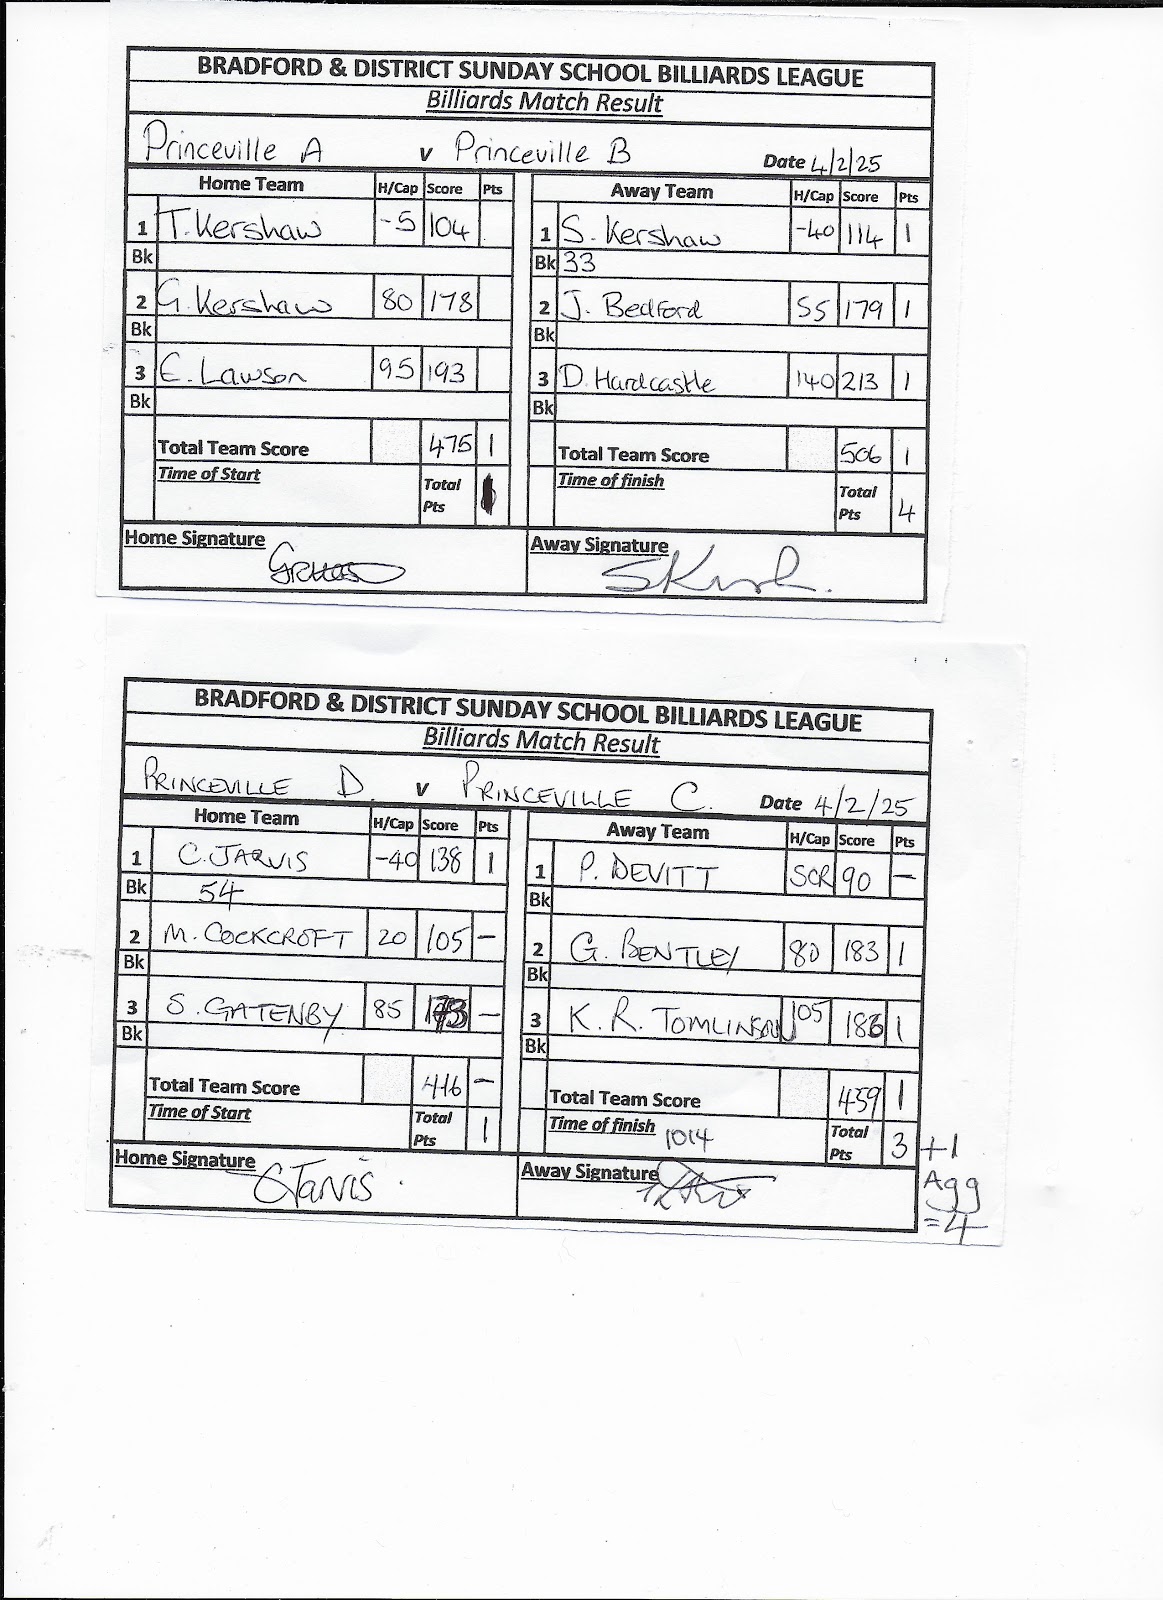 BRADFORD & DISTRICT SUNDAY SCHOOL BILLIARDS LEAGUE
Billiards Match Result
Princeville A v Princeville B Date 4/2/25
Home Team H/Cap Score Pts Away Team H/Cap Score Pts
1 T. Kershaw -5 104 1 S. Kershaw -40 114 1
Bk Bk 33
2 G. Kershaw 80 178 2 J. Bedford 55 179 1
Bk Bk
3 E. Lawson 95 193 3 D. Hardcastle 140 213 1
Bk Bk
Total Team Score 475 1 Total Team Score 506 1
Time of Start Total Pts Time of finish Total Pts 4
Home Signature Away Signature
BRADFORD & DISTRICT SUNDAY SCHOOL BILLIARDS LEAGUE
Billiards Match Result
PRINCEVILLE D. v PRINCEVILLE C. Date 4/2/25
Home Team H/Cap Score Pts Away Team H/Cap Score Pts
1 C. JARVIS -40 138 1 1 P. DEVITT SCR 90 –
Bk 54 Bk
2 M. COCKCROFT 20 105 – 2 G. BENTLEY 80 183 1
Bk Bk
3 S. GATENBY 85 173 – 3 K. R. TOMLINSON 105 186 1
Bk Bk
Total Team Score 416 – Total Team Score 459 1
Time of Start Total Pts 1 Time of finish 1014 Total Pts 3 +1
Agg
=4
Home Signature CJarvis. Away Signature